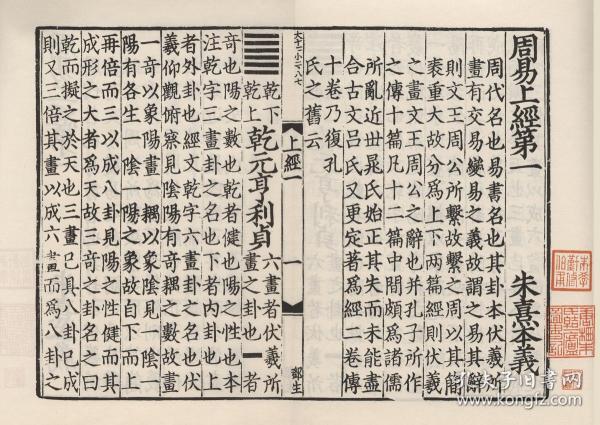 周易上經第一 朱熹本義
周代名也易書名也其卦本伏羲所
畫有交易變易之義故謂之易其辭
則文王周公所繫故繫之周以其簡
袠重大故分爲上下兩篇經則伏羲
之畫文王周公之辭也并孔子所作
之傳十篇凡十二篇中間頗爲諸儒
所亂近世晁氏始正其失而未能盡
合古文吕氏又更定著爲經二卷傳
十卷乃復孔
氏之舊云
上經一
一
䷀
乾下
乾上
乾元亨利貞
六畫者伏羲所
畫之卦也一者
奇也陽之數也乾者健也陽之性也本
注乾字三畫卦之名也下者内卦也上
者外卦也經文乾字六畫卦之名也伏
羲仰觀俯察見陰陽有奇耦之數故畫
一奇以象陽畫一耦以象陰見一陰一
陽有各生一陰一陽之象故自下而上
再倍而三以成八卦見陽之性健而其
成形之大者爲天故三奇之卦名之曰
乾而擬之於天也三畫已具八卦已成
則又三倍其畫以成六畫而爲八卦之
孔夫子旧书网
www.kongfz.com